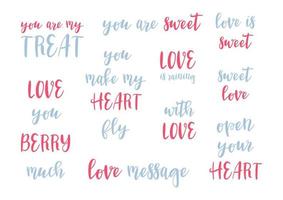 you are my
TREAT
LOVE
you
BERRY
much
you are sweet
you
make my
HEART
fly
love message
LOVE
is raining
with
LOVE
love is
sweet
sweet
love
open
your
HEART